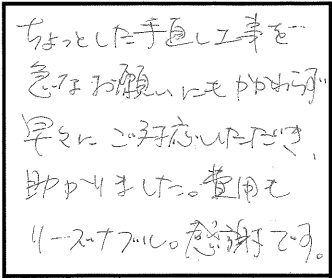 ちょっとした手直し工事を…
急なお願いにもかかわらず
早々にご対応いただき、
助かりました。費用も
リーズナブル。感謝です。